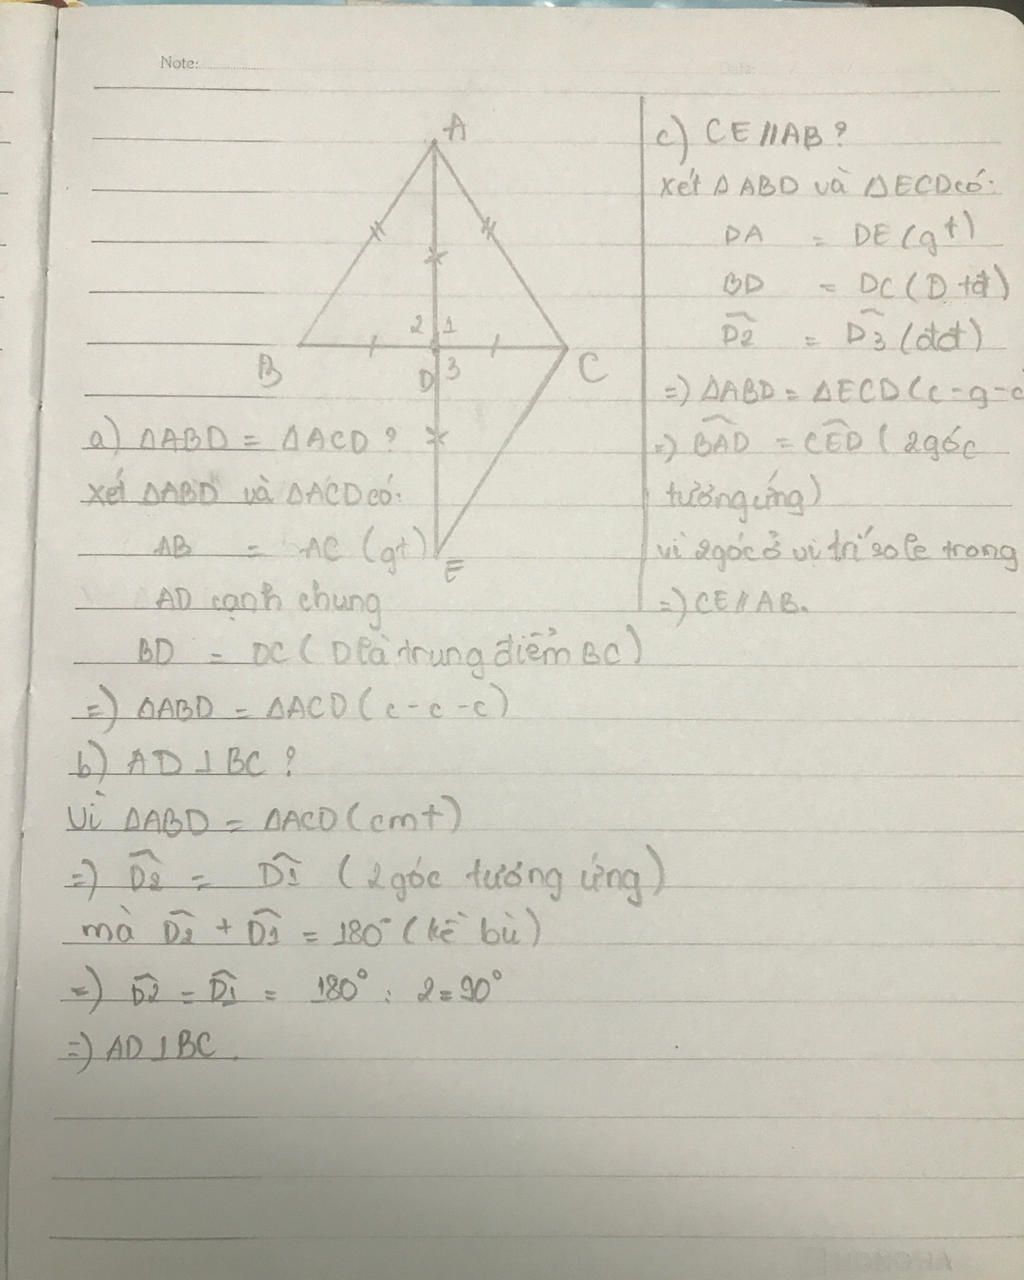 Note:
A
2 1
B
D 3
C
E
a) ΔABD = ΔACD ?
xét ΔABD và ΔACD có:
AB = AC (gt)
AD cạnh chung
BD = DC ( D là trung điểm BC )
=) ΔABD = ΔACD ( c - c - c )
b) AD ⊥ BC ?
Vì ΔABD = ΔACD (cmt)
=) D̂2 = D̂1 ( 2 góc tương ứng )
mà D̂2 + D̂1 = 180° ( kề bù )
=) D̂2 = D̂1 = 180° : 2 = 90°
=) AD ⊥ BC .
c) CE // AB ?
xét ΔABD và ΔECD có:
DA = DE ( gt )
BD = DC ( D tđ )
D̂2 = D̂3 ( đđ )
=) ΔABD = ΔECD ( c - g - c
=) BAD = CED ( 2 góc
tương ứng )
vì 2 góc ở vị trí so le trong
=) CE // AB.